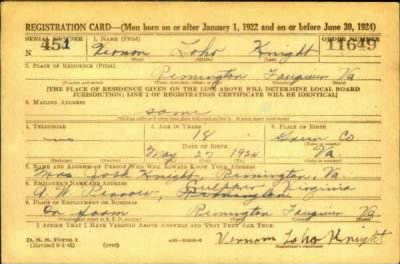 REGISTRATION CARD—(Men born on or after January 1, 1922 and on or before June 30, 1924)
SERIAL NUMBER 1. NAME (Print) ORDER NUMBER
N 451 Vernom Loho Knight 11649
2. PLACE OF RESIDENCE (Print)
Remington Fauquier Va
[THE PLACE OF RESIDENCE GIVEN ON THE LINE ABOVE WILL DETERMINE LOCAL BOARD
JURISDICTION; LINE 2 OF REGISTRATION CERTIFICATE WILL BE IDENTICAL]
3. MAILING ADDRESS
same
4. TELEPHONE 5. AGE IN YEARS 6. PLACE OF BIRTH
no 18 Co
DATE OF BIRTH
May 27 1924 Va.
7. NAME AND ADDRESS OF PERSON WHO WILL ALWAYS KNOW YOUR ADDRESS
Mrs. Josh Knight, Remington, Va
8. EMPLOYER'S NAME AND ADDRESS
Virginia
9. PLACE OF EMPLOYMENT OR BUSINESS
On Remington Fauquier Va
I AFFIRM THAT I HAVE VERIFIED ABOVE ANSWERS AND THAT THEY ARE TRUE.
D. S. S. Form 1
Vernom Loho Knight